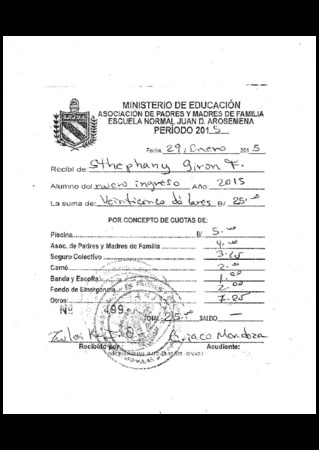 MINISTERIO DE EDUCACIÓN
ASOCIACIÓN DE PADRES Y MADRES DE FAMILIA
ESCUELA NORMAL JUAN D. AROSEMENA
PERÍODO 2015
Fecha 29, Enero 2015
Recibí de Sthephany Giron F.
Alumno del nuevo ingreso Año 2015
La suma de: Veinticinco dólares B/ 25.00
POR CONCEPTO DE CUOTAS DE:
Piscina B/ 5.00
Asoc. de Padres y Madres de Familia 4.00
Seguro Colectivo 3.25
Carné 2.00
Banda y Escolta 1.00
Fondo de Emergencia 2.00
Otros 7.25
Nº 499 TOTAL 25.00 SALDO —
Mendoza
Recibido por: Acudiente: